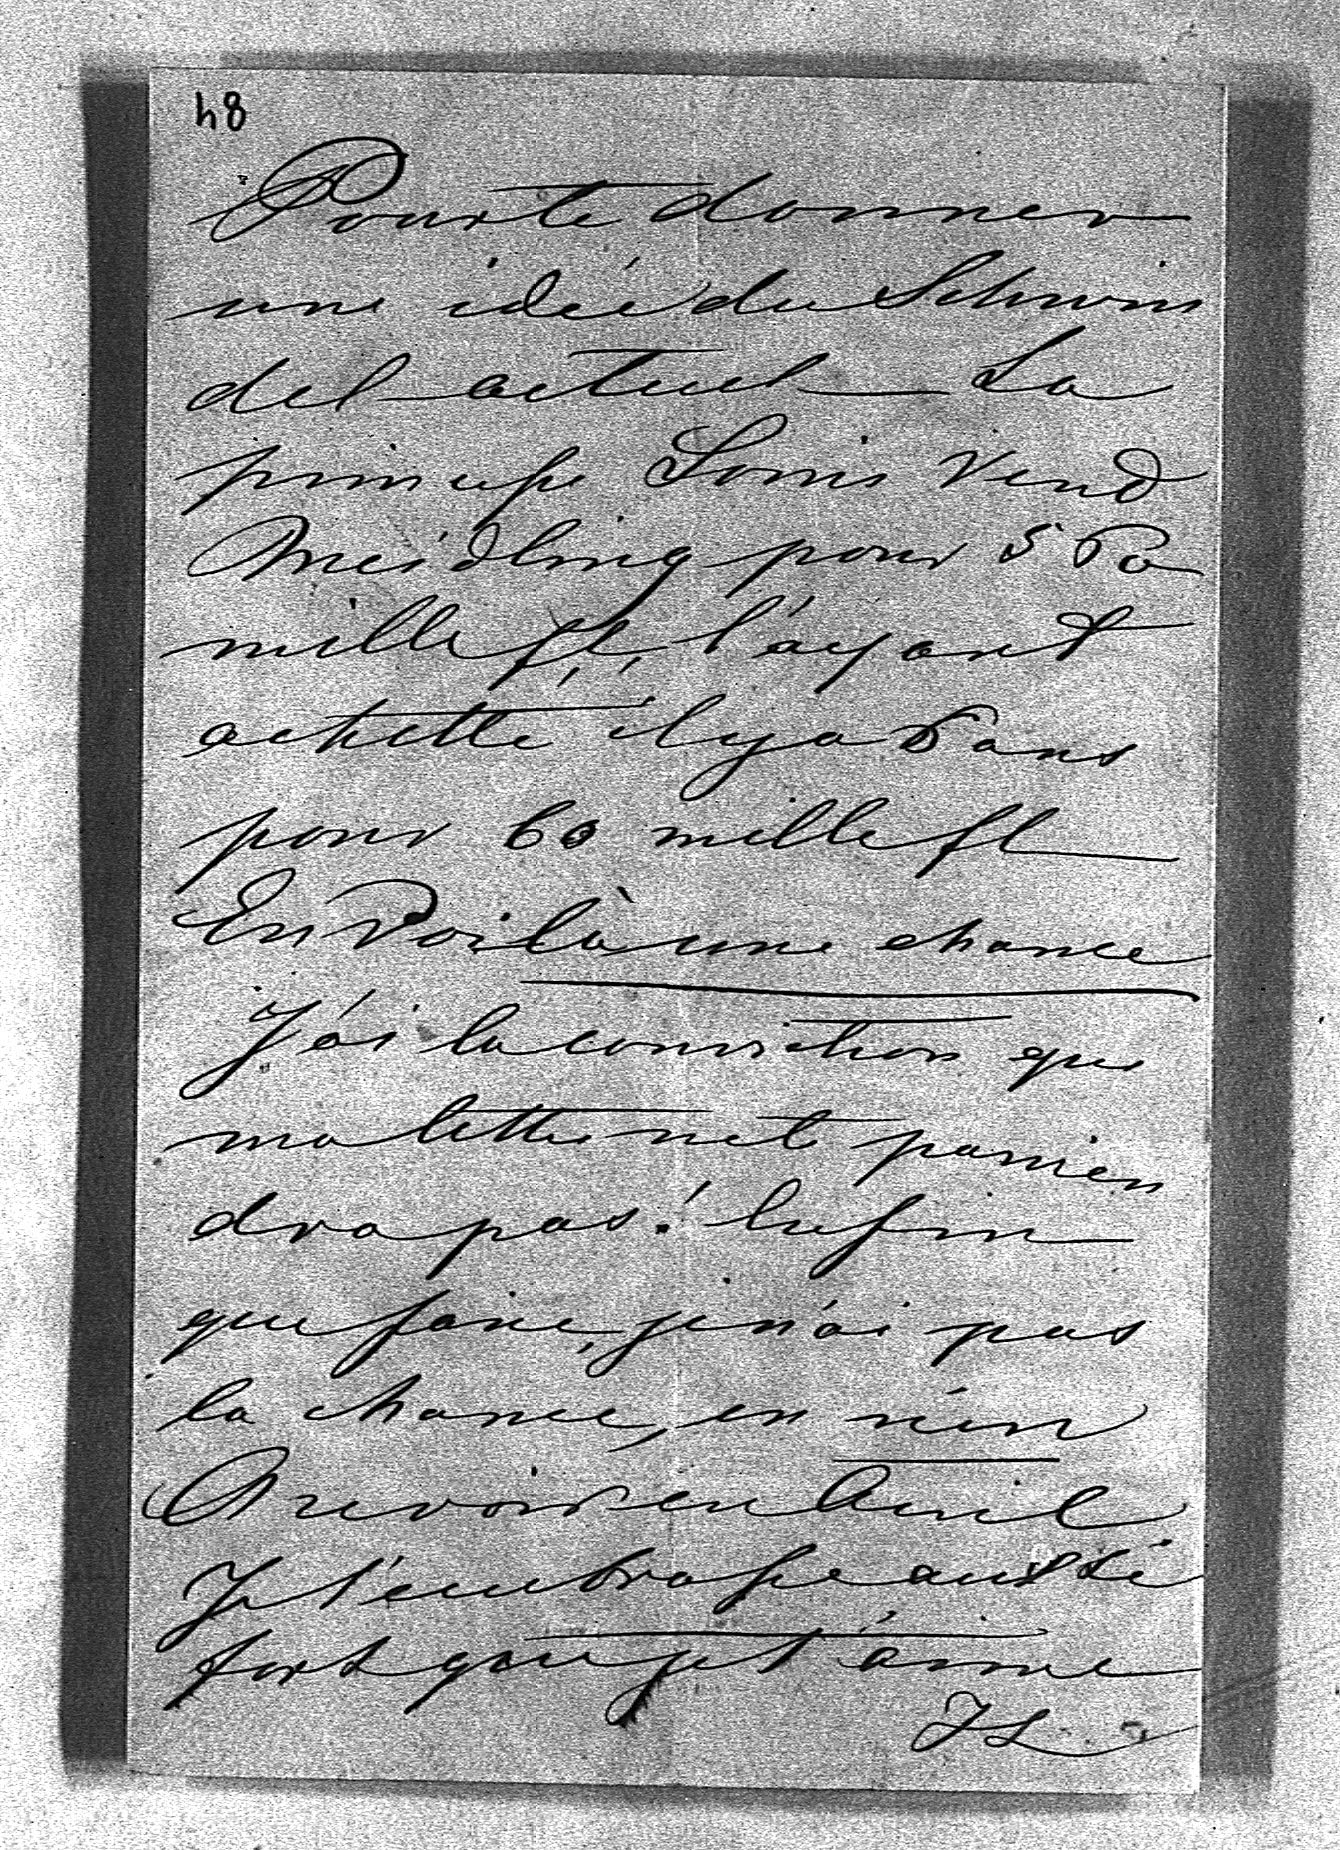 48
Pour te donner
une idée du Schwin
del actuel — La
principe Louis vend
Meidling pour 5
mille fl, l'ayant
achetté il y a 6 ans
pour 60 mille fl —
En voilà une chance
J'ai la conviction que
ma lettre ne te parvien
dra pas! Enfin
que faire, je n'ai pas
la chance, en rien
Au revoir en Avril
Je t'embrasse aussi
fort que je t'aime
JL